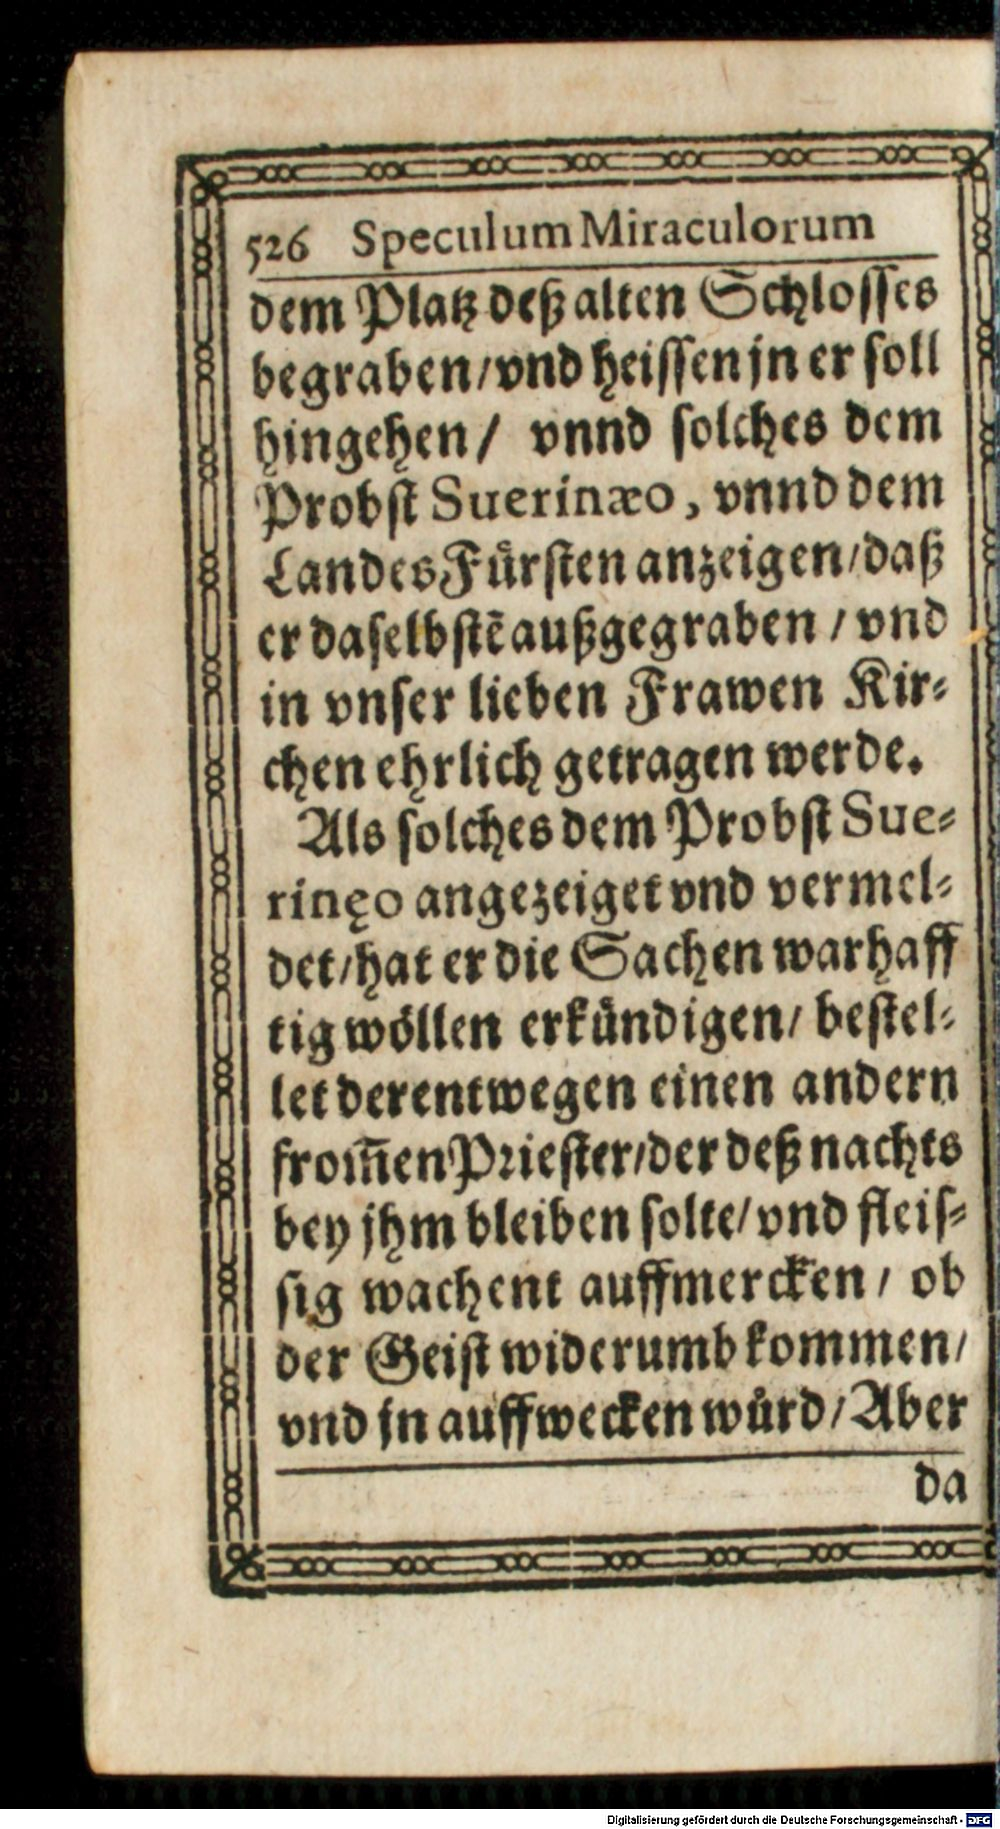 526 Speculum Miraculorum
dem Platz deß alten Schlosses
begraben/vnd heissen jn er soll
hingehen/ vnnd solches dem
Probst Suerinæo, vnnd dem
Landes Fürsten anzeigen/daß
er daselbstē außgegraben / vnd
in vnser lieben Frawen Kir-
chen ehrlich getragen werde.
Als solches dem Probst Sue-
rinęo angezeiget vnd vermel-
det/hat er die Sachen warhaff
tig wöllen erkündigen/ bestel-
let derentwegen einen andern
from̄en Priester/der deß nachts
bey jhm bleiben solte/vnd fleis-
sig wachent auffmercken / ob
der Geist widerumb kommen/
vnd jn auffwecken würd/Aber
da
Digitalisierung gefördert durch die Deutsche Forschungsgemeinschaft - DFG